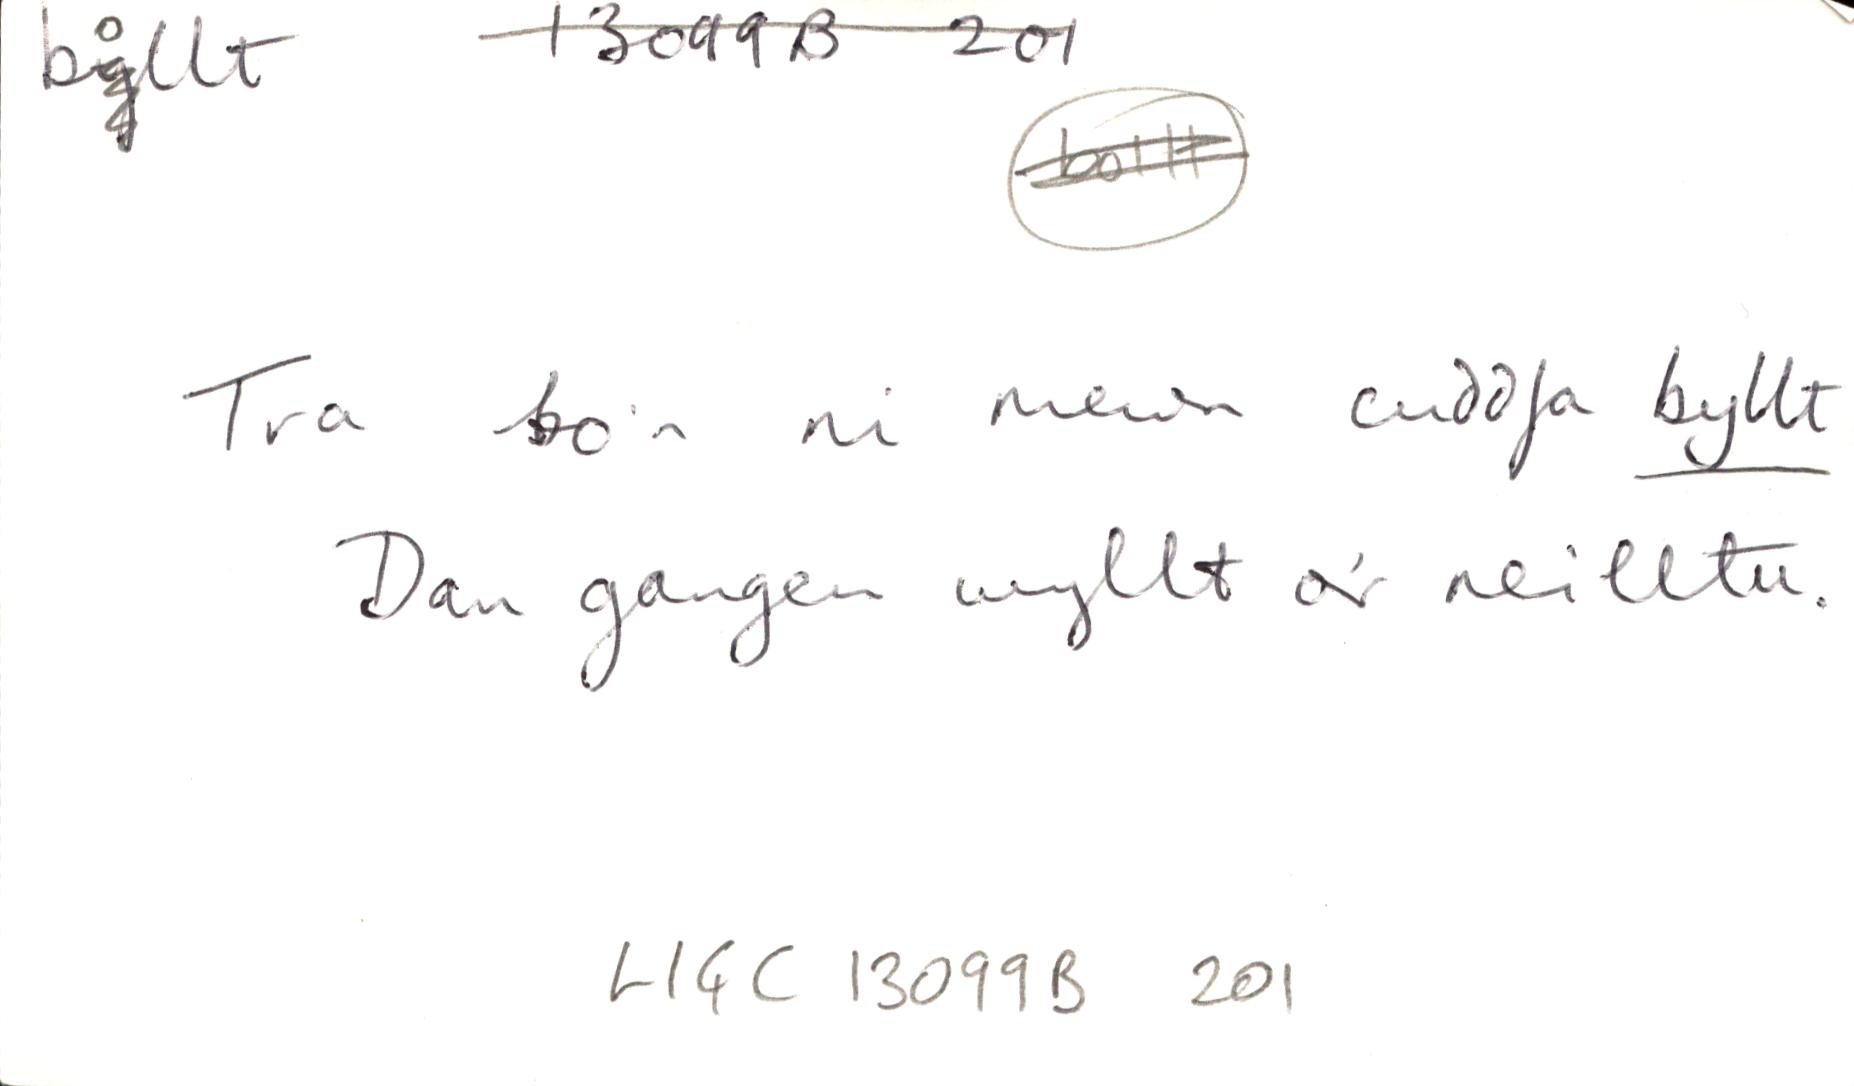 bollt 13099B 201
bollt
Tra bo'n ni mewn cuddfa byllt
Dan gangen wyllt o'r neilltu.
LlGC 13099B 201